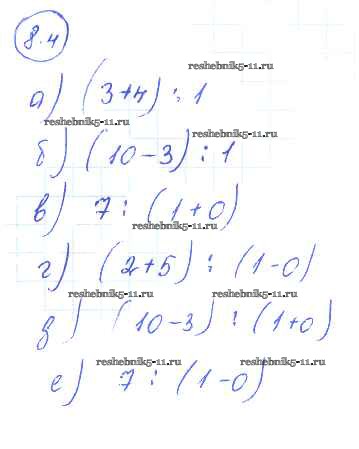 8.4
reshebnik5-11.ru
а) (3+4) : 1
reshebnik5-11.ru
reshebnik5-11.ru
б) (10-3) : 1
в) 7 : (1+0)
reshebnik5-11.ru
г) (2+5) : (1-0)
reshebnik5-11.ru reshebnik5-11.ru
д) (10-3) : (1+0)
reshebnik5-11.ru reshebnik5-11.ru
е) 7 : (1-0)